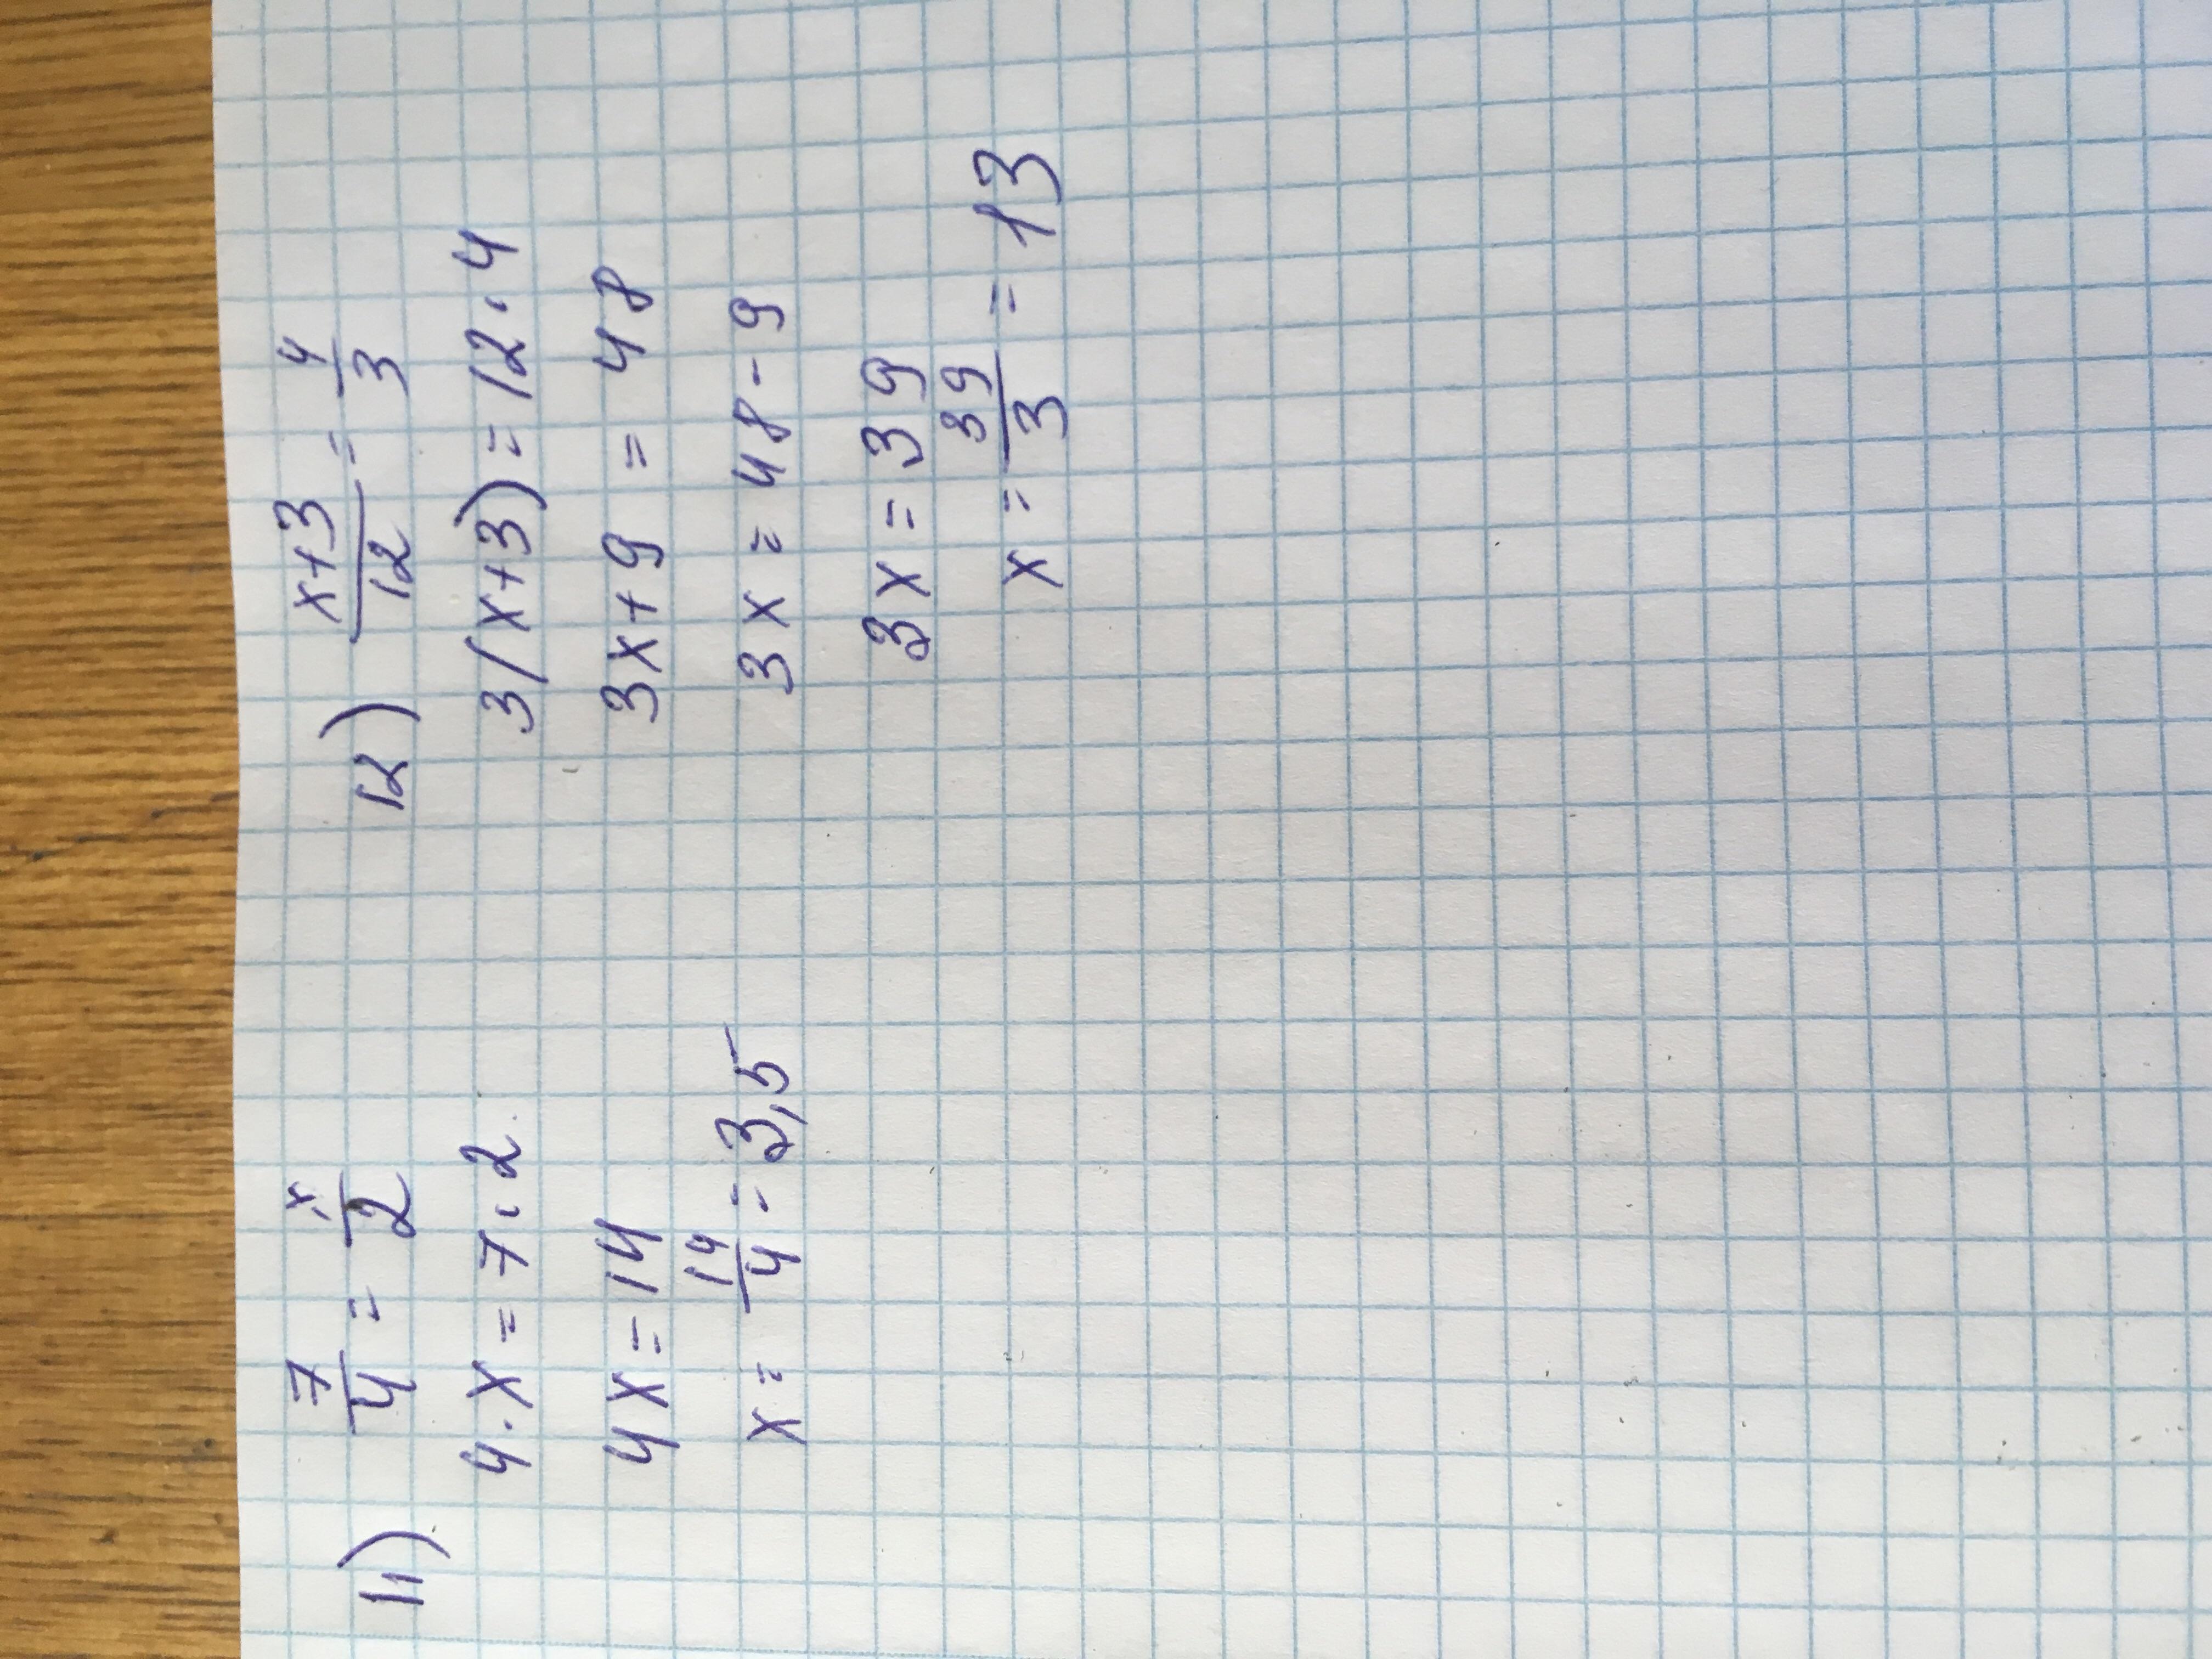 11) 7/4 = x/2
4·x=7·2
4x=14
x=14/4=3,5
12) x+3/12=4/3
3(x+3)=12·4
3x+9=48
3x=48-9
3x=39
x=39/3=13